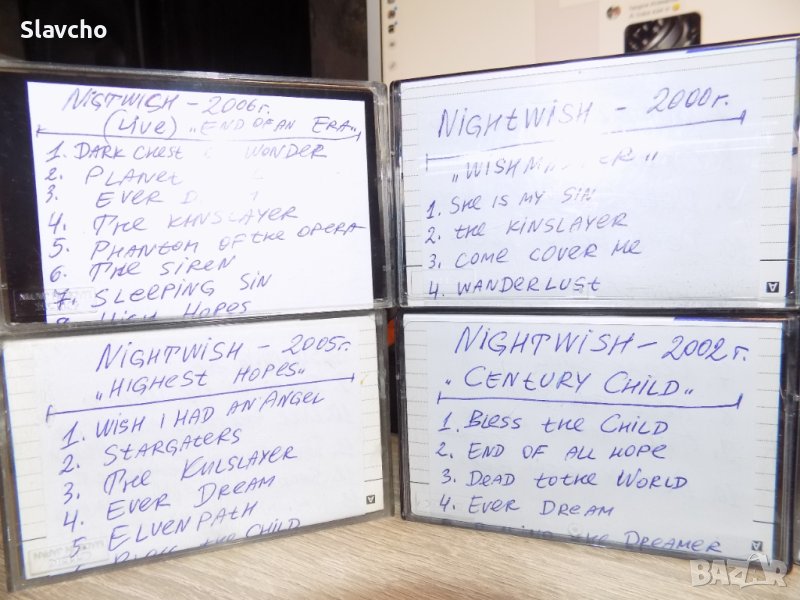 Slavcho
NIGTWISH - 2006г.
(Live) "END OF AN ERA"
1. DARK CHEST WONDER
2. PLANET
3. EVER D
4. THE KINSLAYER
5. PHANTOM OF the OPERA
6. THE SIREN
7. SLEEPING SIN
8. HIGH HOPES
NIGHTWISH - 2000г.
1. SHE IS MY SIN
2. the KINSLAYER
3. COME COVER ME
4. WANDERLUST
A
NIGHTWISH - 2005г.
"HIGHEST HOPES"
1. WISH I HAD AN ANGEL
2. STARGATERS
3. THE KULSLAYER
4. EVER DREAM
5 ELVENPATH
the CHILD
A
NIGHTWISH - 2002г.
"CENTURY CHILD"
1. BLESS the CHILD
2. END OF ALL HOPE
3. DEAD to the WORLD
4. EVER DREAM
the DREAMER
A
BAZAR